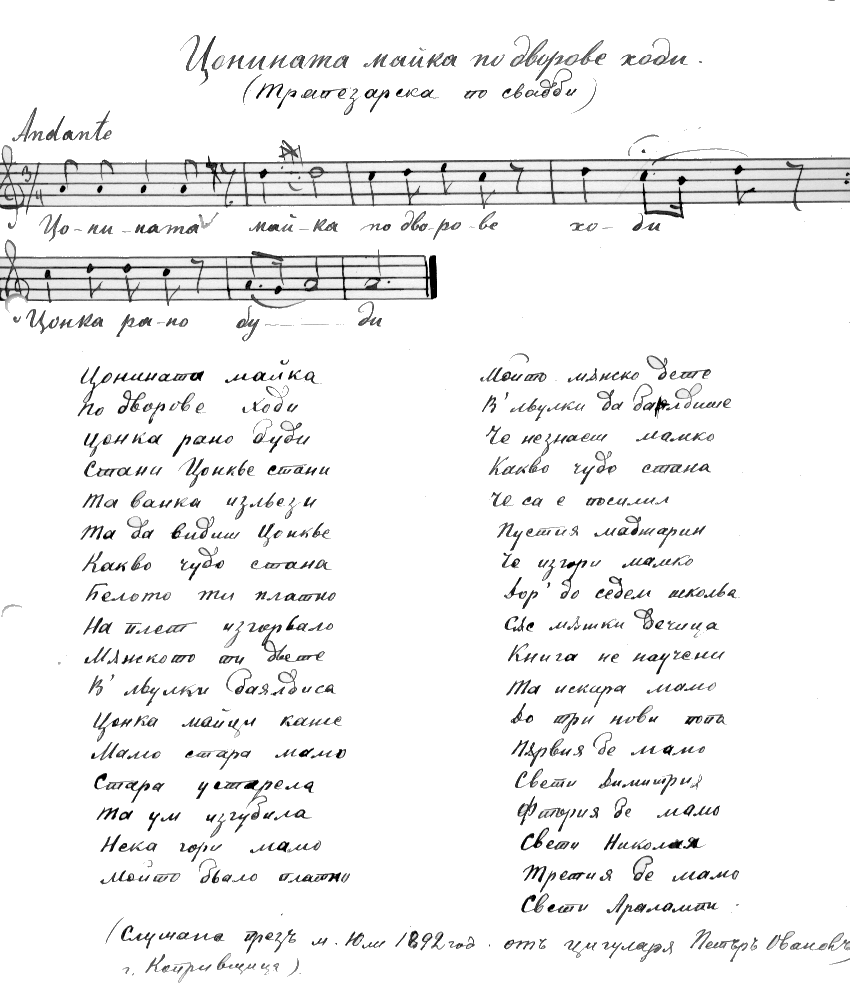 Цонината майка по дворове ходи.
(Трапезарска по свадби)
Andante
3/4
Цо-ни-ната май-ка по дво-ро-ве хо-ди
Цонка ра-но бу--- ди
Цонината майка
по дворове ходи
цонка рано буди
Стани Цонкье стани
Та ванка изльези
Та да видиш Цонкье
Какво чудо стана
Белото ти платно
На плет изгорвало
Мѫнското ти дьете
В' льулки баялдиса
Цонка майци каже
Мамо стара мамо
Стара устарела
Та ум изгубила
Нека гори мамо
Мойто бьало платно
Мойто мѫнско дете
В' льулки да баялдише
Че незнаеш мамко
Какво чудо стана
Че са е посилил
Пустия маджарин
Че изгори мамко
Дор' до седем школьа
Сѫс мѫшки дечица
Книга не научени
Та искара мамо
До три нови попа
Пѫрвия бе мамо
Свети Димитрия
Фтория бе мамо
Свети Николая
Третия бе мамо
Свети Аралампи.
(Слушана презъ м. Юли 1892 год. отъ цигуларя Петъръ Овановъ
г. Копривщица).